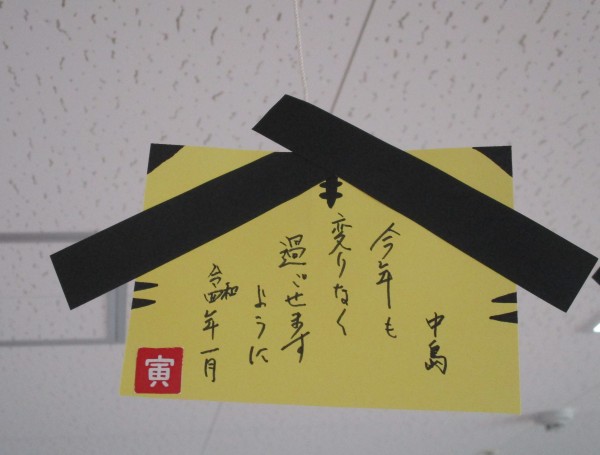 中島
今年も
変りなく
過ごせます
ように
令和四年一月
寅